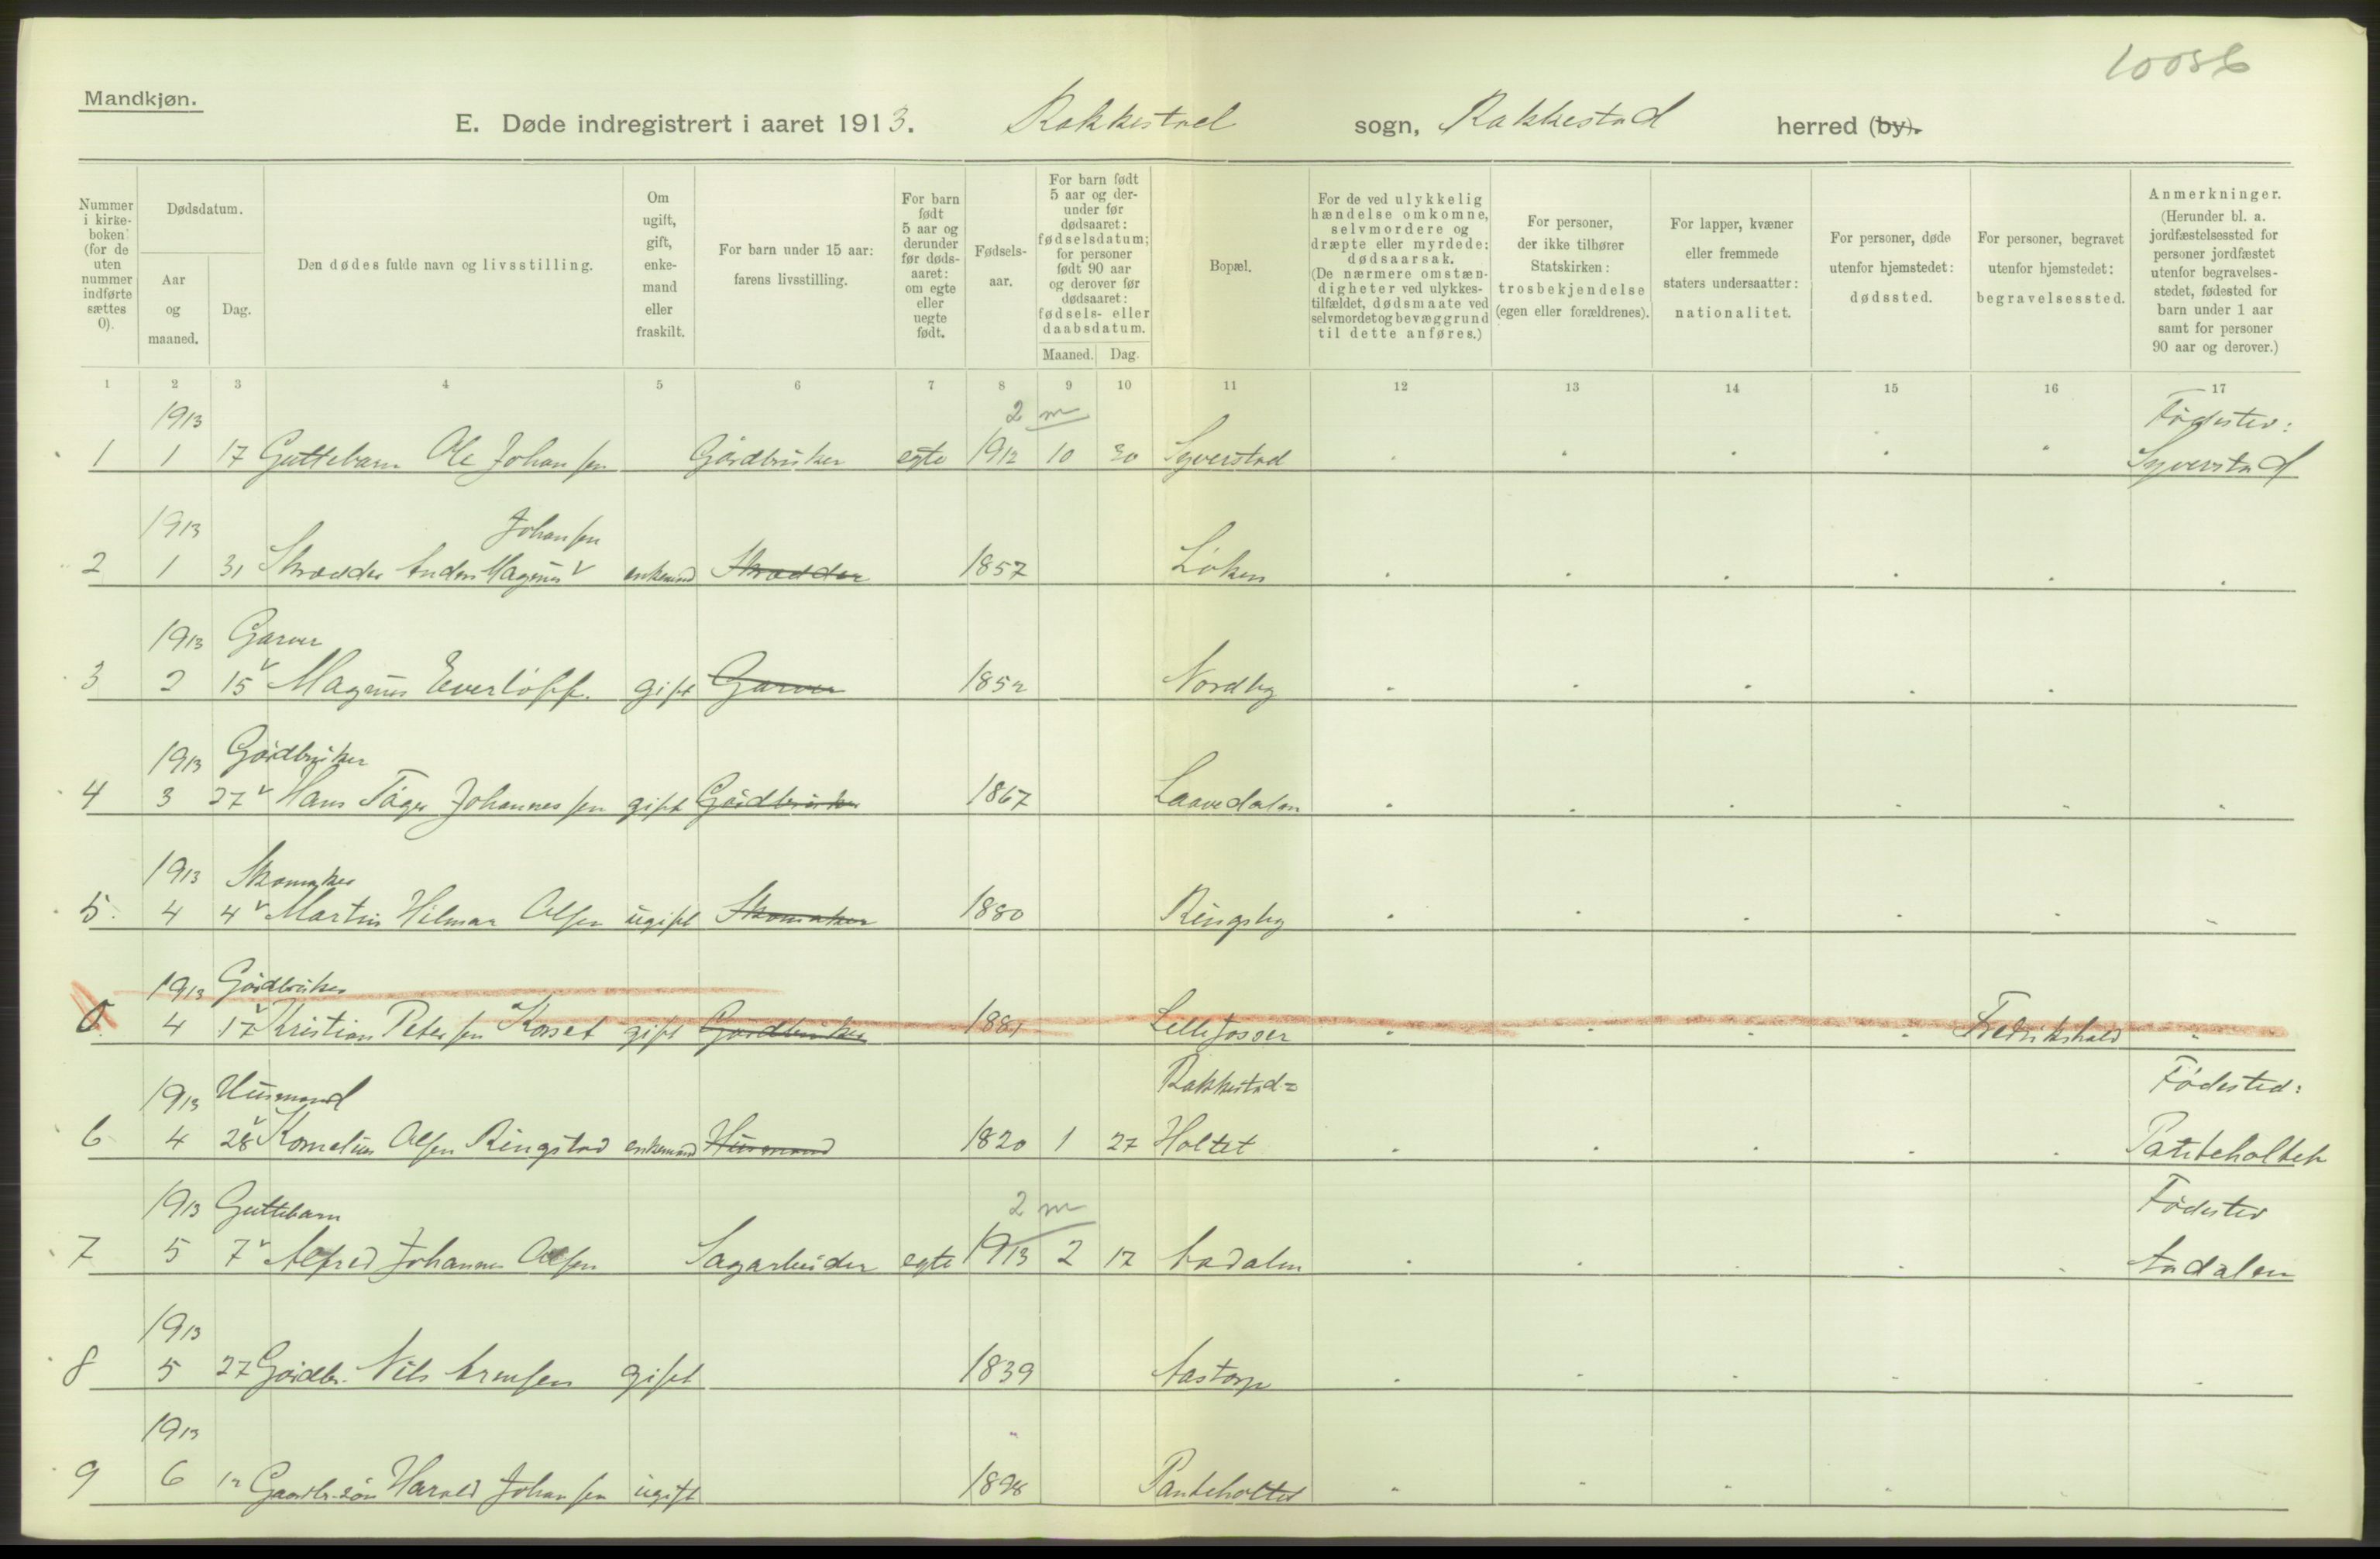 10086
Mandkjøn.
E. Døde indregistrert i aaret 1913. Rakkestad sogn, Rakkestad herred (by).
Nummer i kirkeboken (for de uten nummer indførte sættes 0).
Dødsdatum.
Aar og maaned.
Dag.
Den dødes fulde navn og livsstilling.
Om ugift, gift, enkemand eller fraskilt.
For barn under 15 aar: farens livsstilling.
For barn født 5 aar og derunder før dødsaaret: om egte eller uegte født.
Fødselsaar.
For barn født 5 aar og derunder før dødsaaret: fødselsdatum; for personer født 90 aar og derover før dødsaaret: fødsels- eller daabsdatum.
Maaned. Dag.
Bopæl.
For de ved ulykkelig hændelse omkomne, selvmordere og dræpte eller myrdede: dødsaarsak. (De nærmere omstændigheter ved ulykkestilfældet, dødsmaate ved selvmordet og bevæggrund til dette anføres.)
For personer, der ikke tilhører Statskirken: trosbekjendelse (egen eller forældrenes).
For lapper, kvæner eller fremmede staters undersaatter: nationalitet.
For personer, døde utenfor hjemstedet: dødssted.
For personer, begravet utenfor hjemstedet: begravelsessted.
Anmerkninger. (Herunder bl. a. jordfæstelsessted for personer jordfæstet utenfor begravelsesstedet, fødested for barn under 1 aar samt for personer 90 aar og derover.)
1 2 3 4 5 6 7 8 9 10 11 12 13 14 15 16 17
1913 2 m Fødested:
1 1 17 Guttebarn Ole Johansen Gårdbruker egte 1912 10 30 Syverstad Syverstad
1913 Johansen
2 1 31 Skrædder Anders Magnus enkemand Skrædder 1857 Løken
1913 Garver
3 2 15 Magnus Everløff. gift Garver 1852 Nordby
1913 Gårdbruker
4 3 27 Hans Johannessen gift Gårdbruker 1867 Laavedalen
1913 Skomaker
5. 4 4 Martin Hilmar Olsen ugift Skomaker 1880 Ringsby
1913 Gårdbruker
0. 4 17 Kristian Petersen Korset gift Gårdbruker 1881 Lille Josser Fredrikshald
1913 Husmand Rakkestad= Fødested:
6 4 28 Kornelius Olsen Ringstad enkemand Husmand 1820 1 27 Holtet Panteholtet
1913 Guttebarn 2 m Fødested
7 5 7 Alfred Johannes Olsen Sagarbeider egte 1913 2 17 Aadalen Aadalen
1913
8 5 27 Gårdbr. Nils Arnesen gift 1839 Aastorp
1913
9 6 12 Gaardbr.søn Harald Johansen ugift 1898 Panteholtet